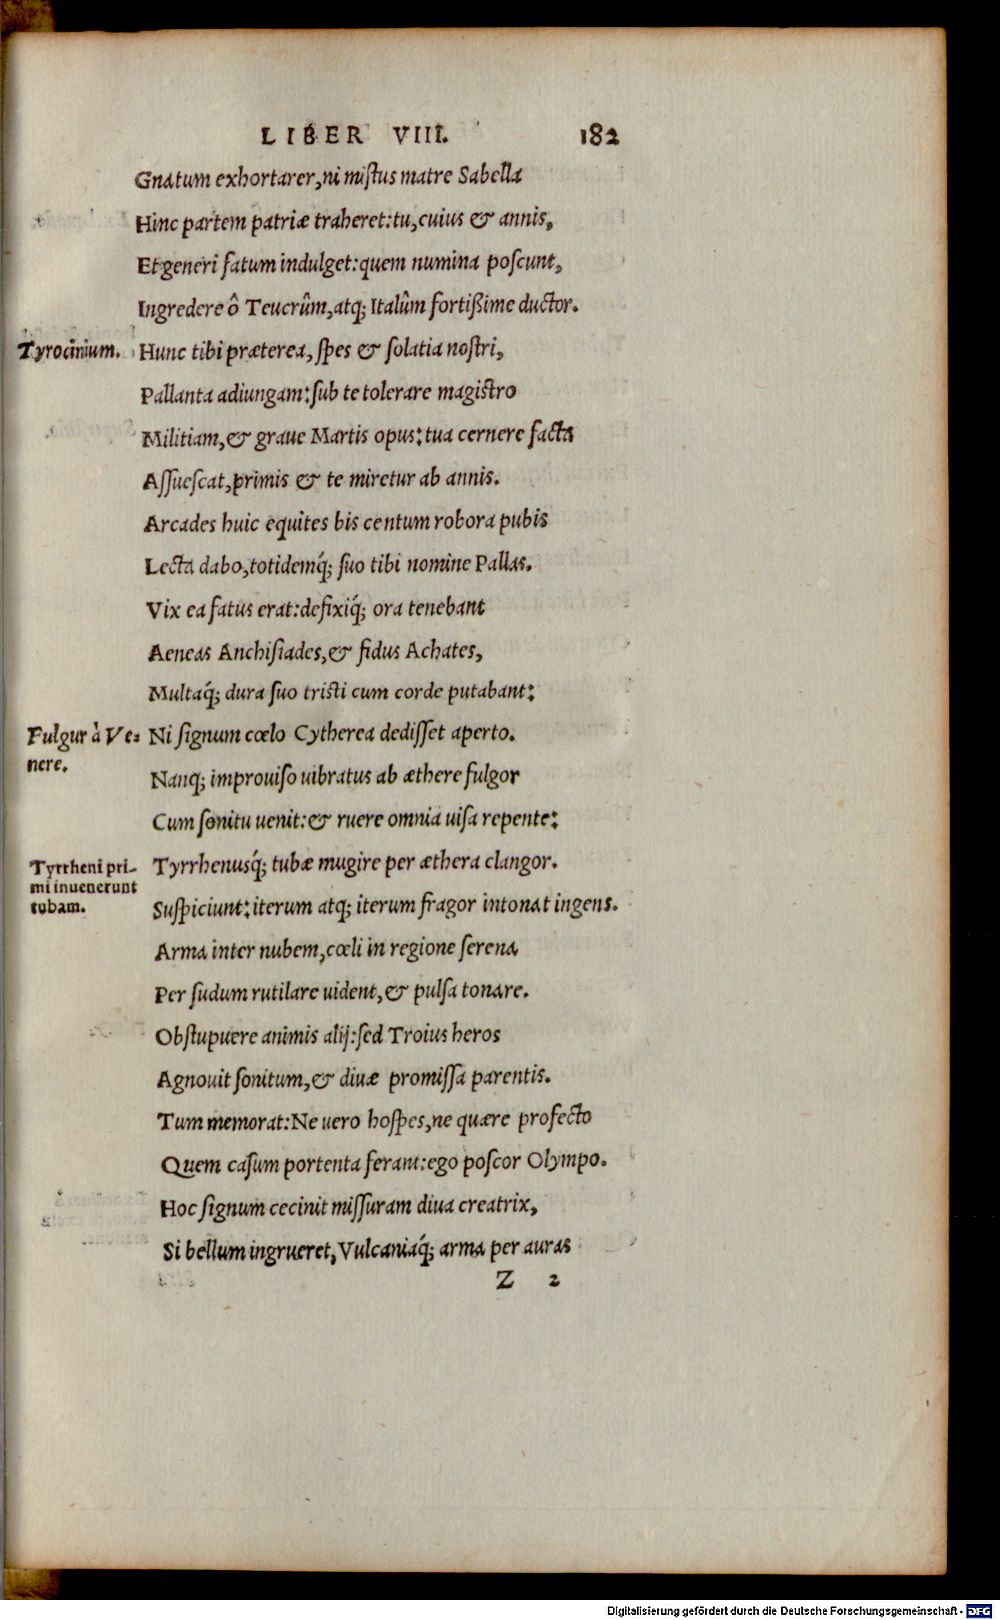 LIBER VIII. 182
Gnatum exhortarer, ni mistus matre Sabella
Hinc partem patriæ traheret: tu, cuius & annis,
Et generi fatum indulget: quem numina poscunt,
Ingredere ô Teucrûm, atq; Italûm fortißime ductor.
Tyrocinium.
Hunc tibi præterea, spes & solatia nostri,
Pallanta adiungam: sub te tolerare magistro
Militiam, & graue Martis opus: tua cernere facta
Assuescat, primis & te miretur ab annis.
Arcades huic equites bis centum robora pubis
Lecta dabo, totidemq́; suo tibi nomine Pallas.
Vix ea fatus erat: defixiq́; ora tenebant
Aeneas Anchisiades, & fidus Achates,
Multaq́; dura suo tristi cum corde putabant:
Fulgur à Ve-
nere.
Ni signum cœlo Cytherea dedisset aperto.
Nanq; improuiso uibratus ab æthere fulgor
Cum sonitu uenit: & ruere omnia uisa repente:
Tyrrheni pri-
mi inuenerunt
tubam.
Tyrrhenusq́; tubæ mugire per æthera clangor.
Suspiciunt: iterum atq; iterum fragor intonat ingens.
Arma inter nubem, cœli in regione serena
Per sudum rutilare uident, & pulsa tonare.
Obstupuere animis alij: sed Troius heros
Agnouit sonitum, & diuæ promissa parentis.
Tum memorat: Ne uero hospes, ne quære profecto
Quem casum portenta ferant: ego poscor Olympo.
Hoc signum cecinit missuram diua creatrix,
Si bellum ingrueret, Vulcaniaq́; arma per auras
Z 2
Digitalisierung gefördert durch die Deutsche Forschungsgemeinschaft - DFG